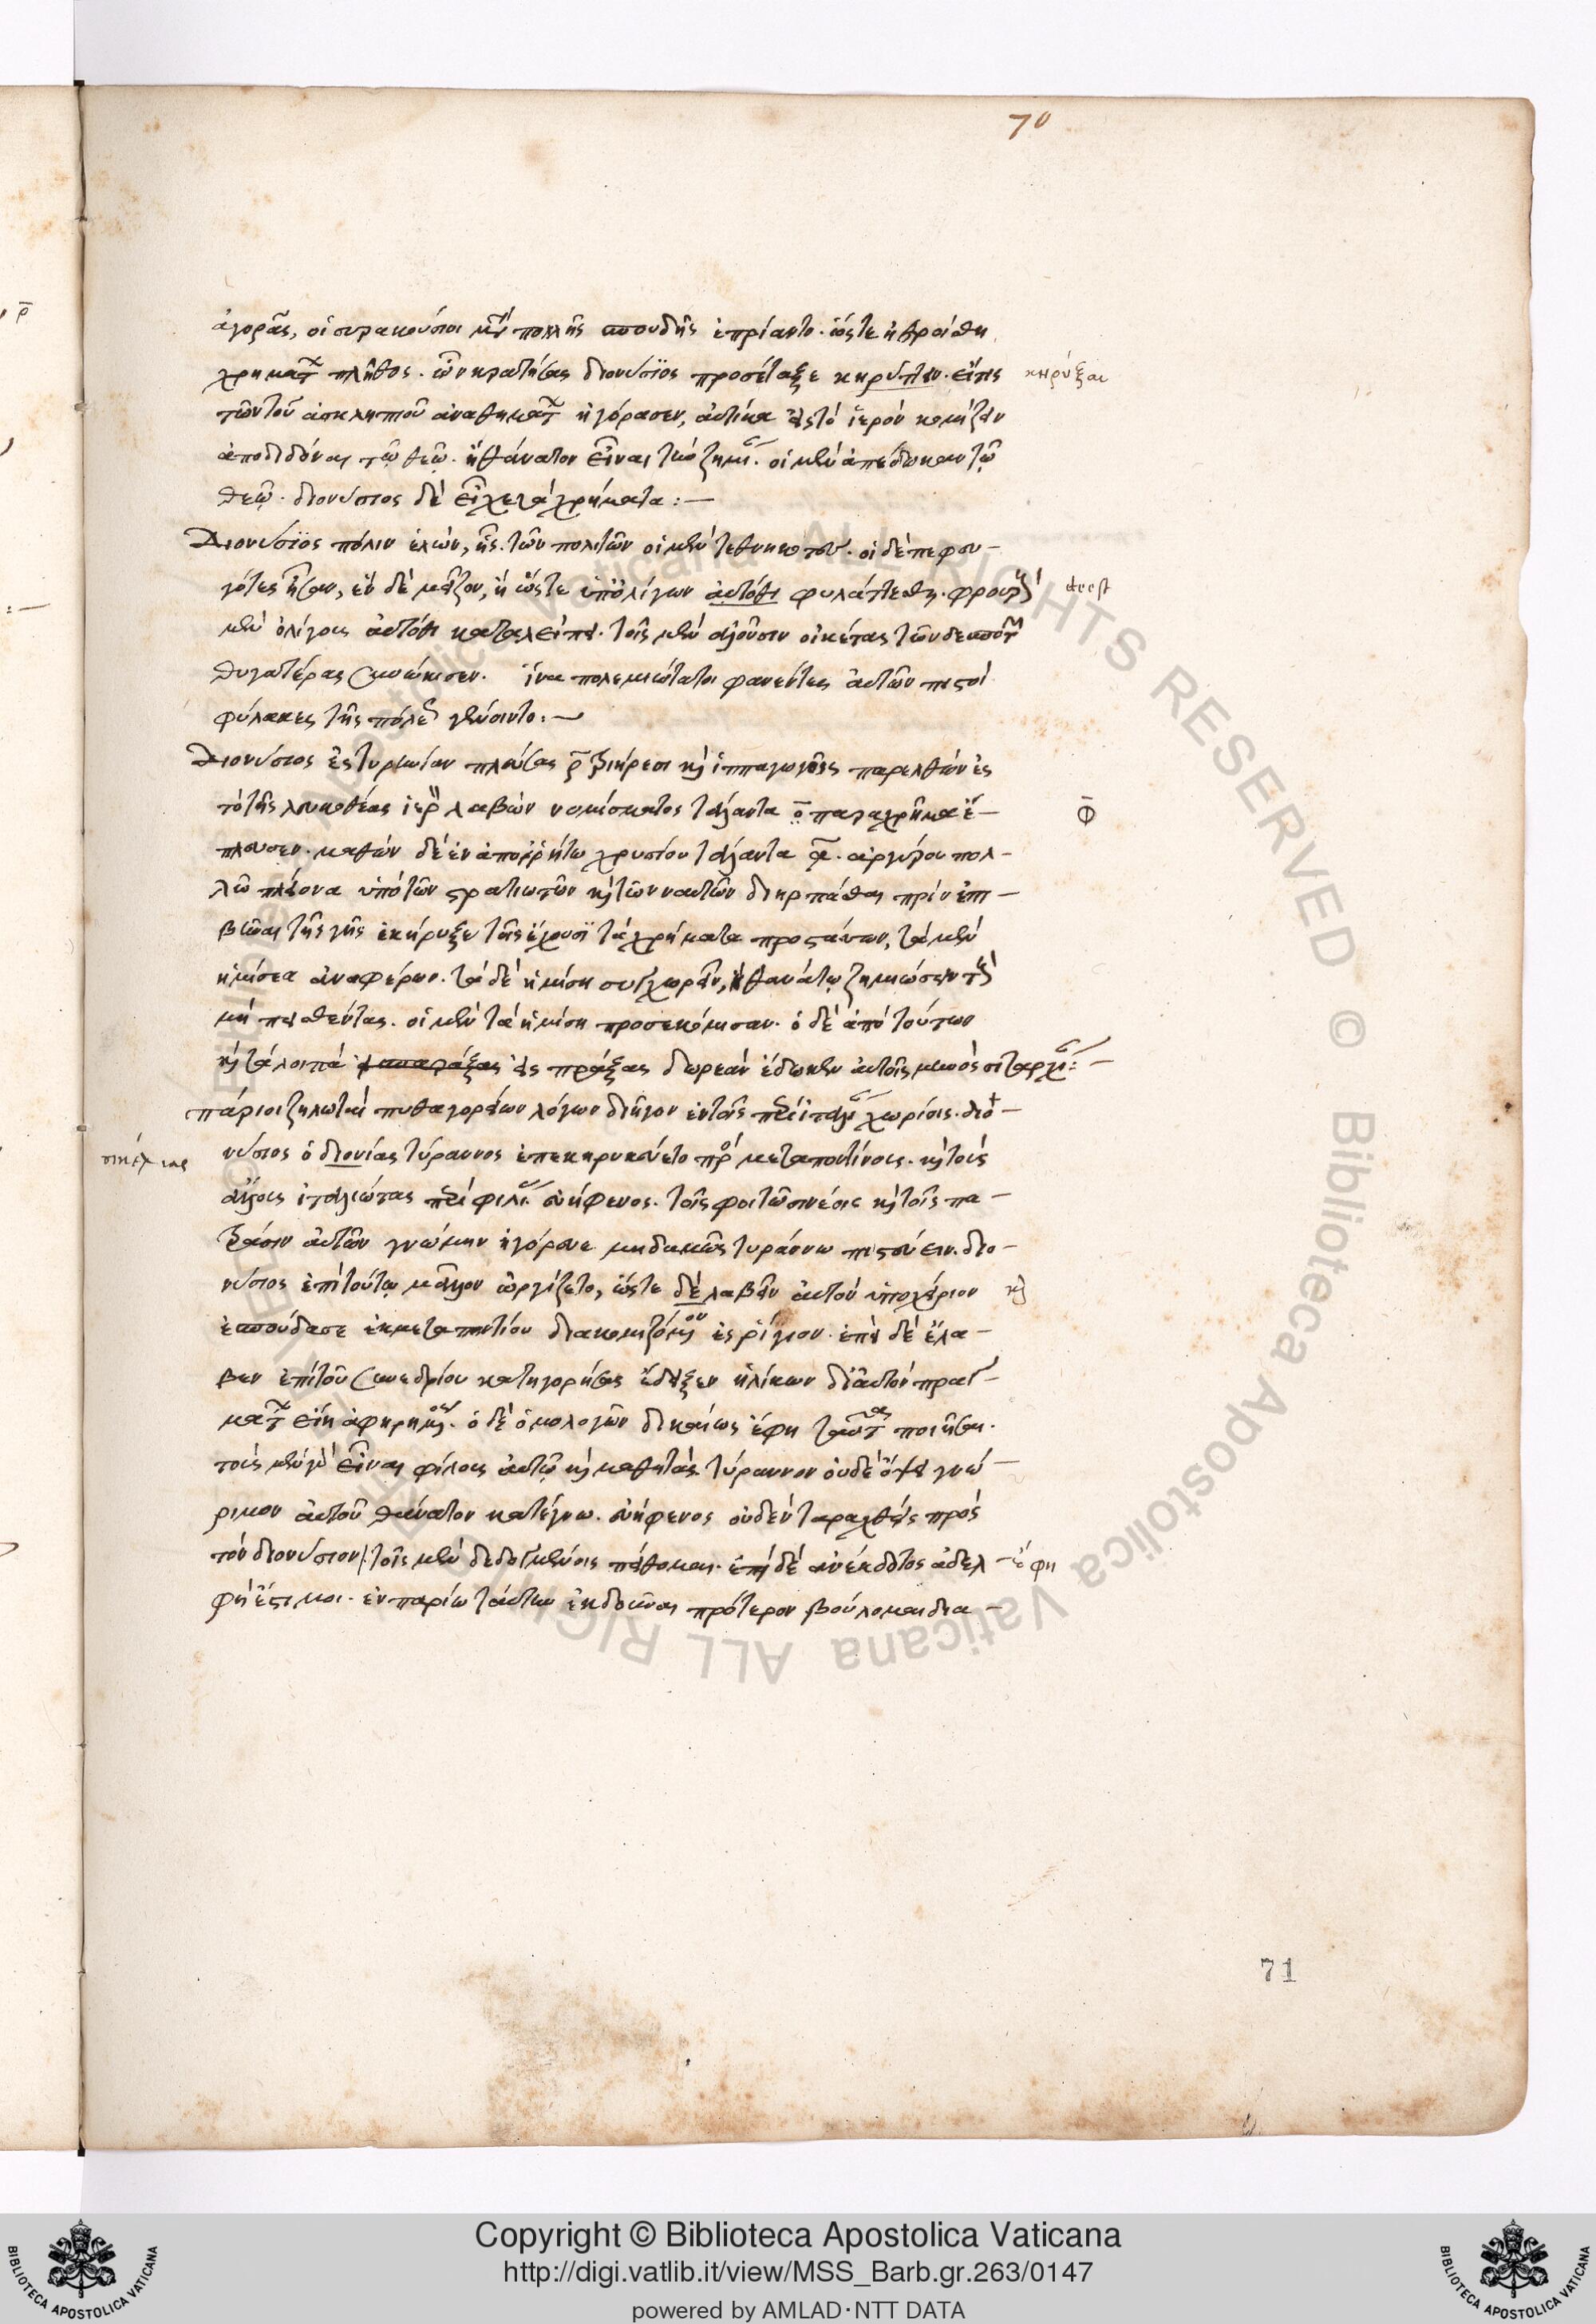 70
ἀγορᾶς, οἱ συρακούσιοι μετὰ πολλῆς σπουδῆς ἐπρίαντο. ὥστε ἠθροίσθη
χρημάτ πλῆθος. ὧν κρατήσας διονύσιος προσέταξε κηρύττειν. εἴ τις
κηρύξαι
τῶν τοῦ ἀσκληπιοῦ ἀναθημάτ ἠγόρασεν, αὐτίκα εἰς τὸ ἱερὸν κομίζειν
ἀποδιδόναι τῷ θεῷ. ἢ θάνατον εἶναι τὴν ζημί. οἱ μὲν ἀπέδωκαν τῷ
θεῷ. διονύσιος δὲ εἶχε τὰ χρήματα :—
Διονύσιος πόλιν ἑλὼν, ἧς τῶν πολιτῶν οἱ μὲν τεθνηκότες. οἱ δὲ πεφευ-
γότες ἦσαν, ἦν δὲ μεῖζον, ἢ ὥστε ὑπ' ὀλίγων αὐτόθι φυλάττεσθαι. φρουροὺς
deest
μὲν ὀλίγους αὐτόθι καταλείπει. τοῖς μὲν ἁλοῦσιν οἰκέτας τῶν δεσποτῶν
θυγατέρας συνῴκισεν. ἵνα πολεμιώτατοι φανέντες αὐτῶν πιστοὶ
φύλακες τῆς πόλε γένοιντο :—
Διονύσιος ἐς τυρρηνίαν πλεύσας ρ τριήρεσι καὶ ἱππαγωγοῖς παρελθὼν ἐς
τὸ τῆς λευκοθέας ἱερὸν λαβὼν νομίσματος τάλαντα ο παραχρῆμα ἔ-
Φ
πλευσεν. μαθὼν δὲ ἐν ἀπορρήτω χρυσίου τάλαντα ἀργύρου πολ-
λῶ πλέονα ὑπὸ τῶν στρατιωτῶν καὶ τῶν ναυτῶν διηρπάσθαι πρὶν ἐπι-
βῆναι τῆς γῆς ἐκήρυξε τοῖς ἔχουσι τὰ χρήματα προστάττων, τὰ μὲν
ἡμίσεα ἀναφέρειν. τὰ δὲ ἡμίση συγχωρεῖν, ἢ θανάτῳ ζημιώσειν τοὺς
μὴ πεισθέντας. οἱ μὲν τὰ ἡμίση προσεκόμισαν. ὁ δὲ ἀπὸ τούτων
καὶ τὰ λοιπὰ εἰς πράξας δωρεὰν ἔδωκεν αὐτοῖς μηνὸς σιταρχί :—
πάριοι ζηλωταὶ πυθαγορείων λόγων διῆγον ἐν τοῖς περὶ ἰταλί χωρίοις. διο-
νύσιος ὁ διονίας τύραννος ἐπεκηρυκεύετο πρὸς μεταποντίνους. καὶ τοὺς
σικελίας
ἄλλους ἰταλιώτας περὶ φιλί. εὐήφενος. τοῖς φοιτῶσι νέοις καὶ τοῖς πα-
τράσιν αὐτῶν γνώμην ἠγόρευε μηδαμῶς τυράννω πιστεύειν. διο-
νύσιος ἐπὶ τούτῳ μᾶλλον ὠργίζετο, ὥστε δὲ λαβεῖν αὐτὸν ὑποχείριον
καὶ
ἐσπούδασε ἐκ μεταποντίου διακομιζόμενον ἐς ῥήγιον. ἐπεὶ δὲ ἔλα-
βεν ἐπὶ τοῦ συνεδρίου κατηγορήσας ἔδειξεν ἡλίκων δι' αὐτὸν πραγ-
μάτ εἴη ἀφῃρημένος. ὁ δὲ ὁμολογῶν δικαίως ἔφη ταῦτα ποιῆσαι.
τοὺς μὲν γὰρ εἶναι φίλους αὐτῷ καὶ μαθητὰς. τύραννον οὐδὲ ὄψει γνώ-
ριμον αὐτοῦ θάνατον κατέγνω. εὐήφενος οὐδὲν ταραχθεὶς πρὸς
τὸν διονύσιον / τοῖς μὲν δεδογμένοις πείθομαι. ἐπεὶ δὲ ἀνέκδοτος ἀδελ-
ἔφη
φή ἐστι μοι. ἐν παρίω ταύτην ἐκδοῦναι πρότερον βούλομαι δια-
71
Copyright © Biblioteca Apostolica Vaticana
http://digi.vatlib.it/view/MSS_Barb.gr.263/0147
powered by AMLAD·NTT DATA